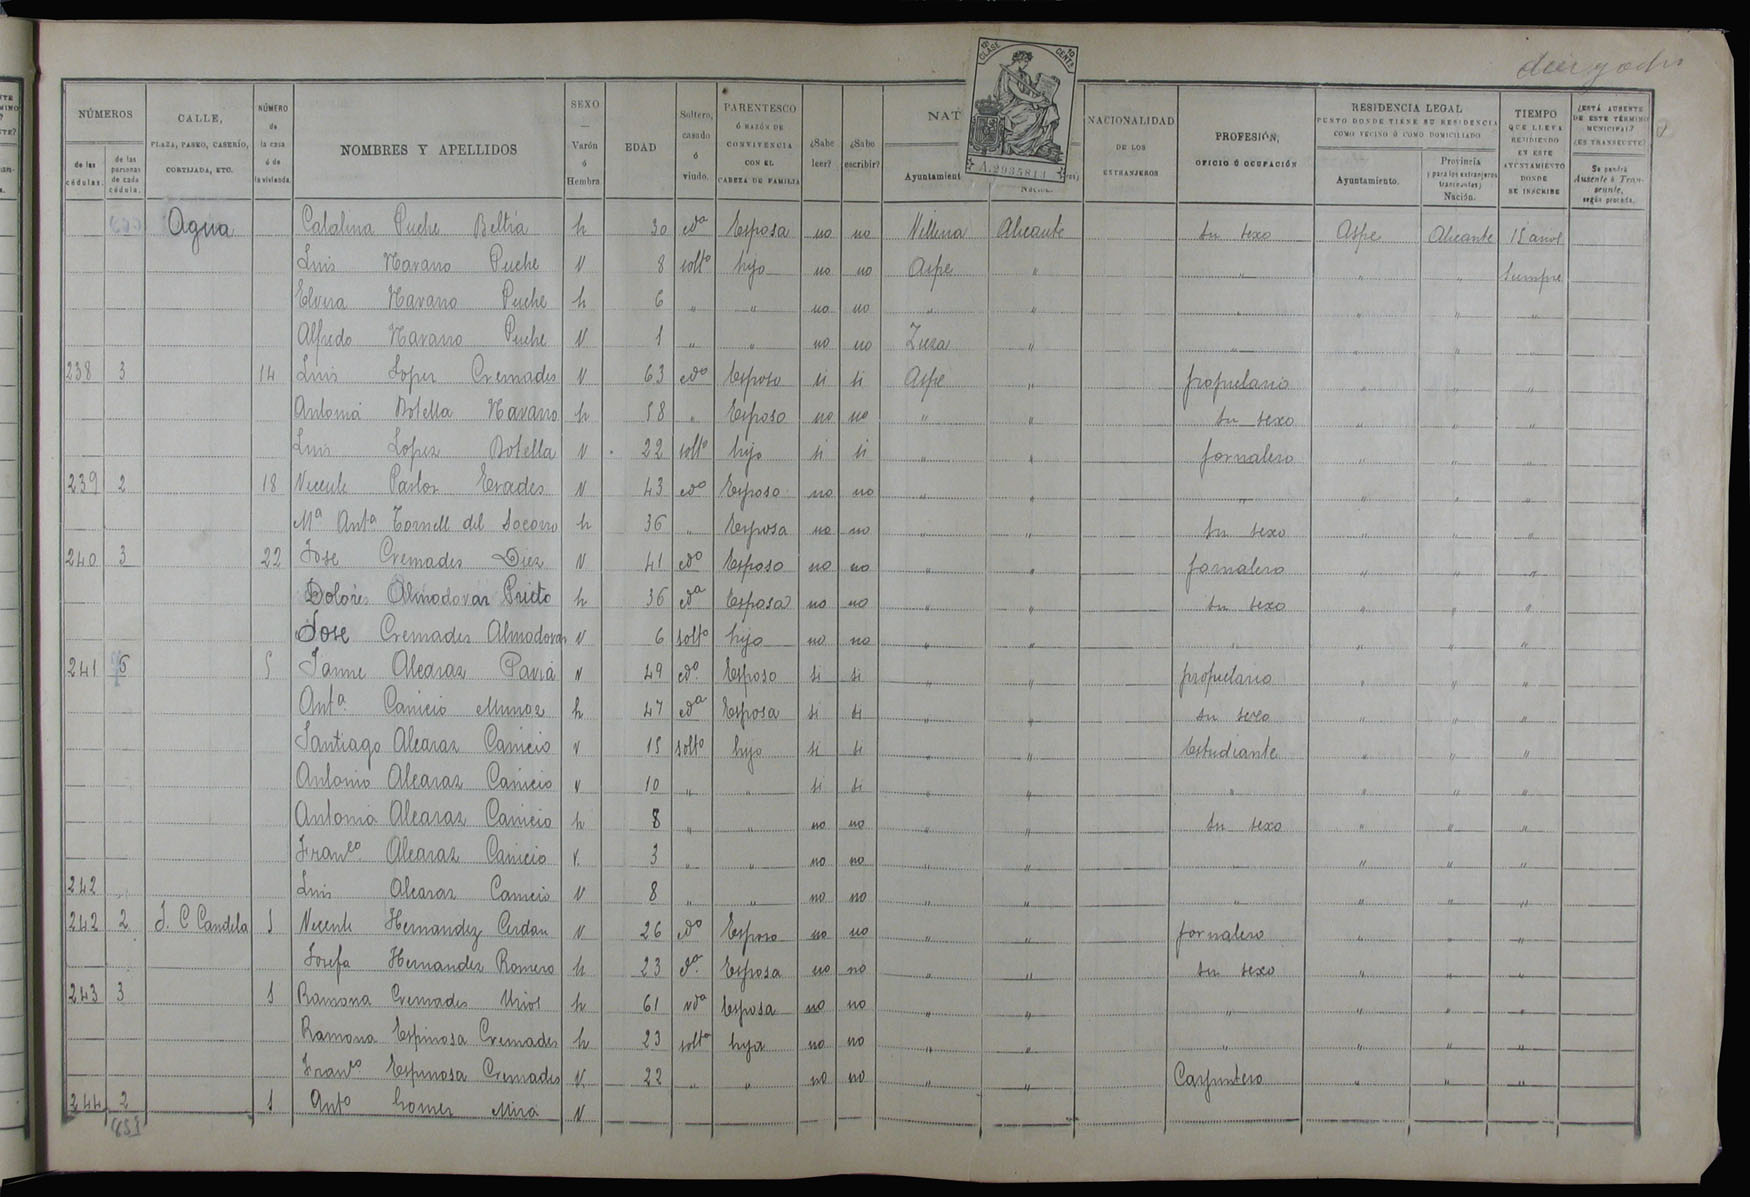 NÚMEROS
de las cédulas.
de las personas de cada cédula.
CALLE, PLAZA, PASEO, CASERÍO, CORTIJADA, ETC.
NÚMERO de la casa ó de la vivienda.
NOMBRES Y APELLIDOS
SEXO — Varón ó Hembra.
EDAD
Soltero, casado ó viudo.
PARENTESCO Ó RAZÓN DE CONVIVENCIA CON EL CABEZA DE FAMILIA
¿Sabe leer?
¿Sabe escribir?
NAT
Ayuntamient
CLASE 10 CENTS
A.2935814
NACIONALIDAD DE LOS EXTRANJEROS
PROFESIÓN, OFICIO Ó OCUPACIÓN
RESIDENCIA LEGAL
PUNTO DONDE TIENE SU RESIDENCIA COMO VECINO Ó COMO DOMICILIADO
Ayuntamiento.
Provincia (y para los extranjeros transeuntes) Nación.
TIEMPO QUE LLEVA RESIDIENDO EN ESTE AYUNTAMIENTO DONDE SE INSCRIBE
¿ESTÁ AUSENTE DE ESTE TÉRMINO MUNICIPAL? (ES TRANSEUNTE)
Se pondrá Ausente ó Transeunte, según proceda.
Agua Catalina Puche Beltrá h 30 cdª Esposa no no Villena Alicante su sexo Aspe Alicante 15 años
Luis Navarro Puche V 8 soltº hijo no no Aspe " " " " Siempre
Elvira Navarro Puche h 6 " " no no " " " " " "
Alfredo Navarro Puche V 1 " " no no " " " " "
238 3 14 Luis Lopez Cremades V 63 cdº Esposo si si Aspe " propietario " " "
Antonia Botella Navarro h 58 " Esposo no no " " su sexo " " "
Luis Lopez Botella V 22 soltº hijo si si " " jornalero " " "
239 2 18 Vicente Pastor Erades V 43 cdº Esposo no no " " " " " "
Mª Antª Tornell del Socorro h 36 " Esposa no no " " su sexo " " "
240 3 22 Jose Cremades Diez V 41 cdº Esposo no no " " jornalero " " "
Dolores Almodovar Prieto h 36 cdª Esposa no no " " su sexo " " "
Jose Cremades Almodovar V 6 soltº hijo no no " " " " " "
241 6 5 Jaime Alcaraz Pavia V 49 cdº Esposo si si " " propietario " " "
Antª Cañicio Muñoz h 47 cdª Esposa si si " " su sexo " " "
Santiago Alcaraz Cañicio V 15 soltº hijo si si " " Estudiante " " "
Antonio Alcaraz Cañicio V 10 " " si si " " " " " "
Antonia Alcaraz Cañicio h 8 " " no no " " su sexo " " "
Francº Alcaraz Cañicio V. 3 " " no no " " " " " "
242 " Luis Alcaraz Cañicio V 8 " " no no " " " " " "
242 2 J. C Candela 1 Vicente Hernandez Cerdan V 26 cdº Esposo no no " " jornalero " " "
Josefa Hernandez Romero h 23 dª Esposa no no " " su sexo " " "
243 3 1 Ramona Cremades Uriol h 61 vdª Esposa no no " " " " " "
Ramona Espinosa Cremades h 23 soltª hija no no " " " " " "
Francº Espinosa Cremades V. 22 " " no no " " Carpintero " " "
244 2 1 Antº Gomez Mira V